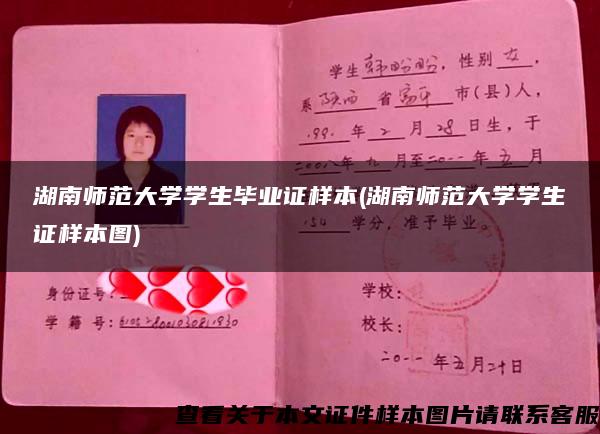 学生韩盼盼，性别女，
系陕西省富平市(县)人，
1991年2月28日生，于
二00八年九月至二0一一年五月
湖南师范大学学生毕业证样本(湖南师范大学学生
证样本图)
154学分，准予毕业。
身份证号：
学籍号：
学校：
校长：
二0一一年五月二十日
查看关于本文证件样本图片请联系客服